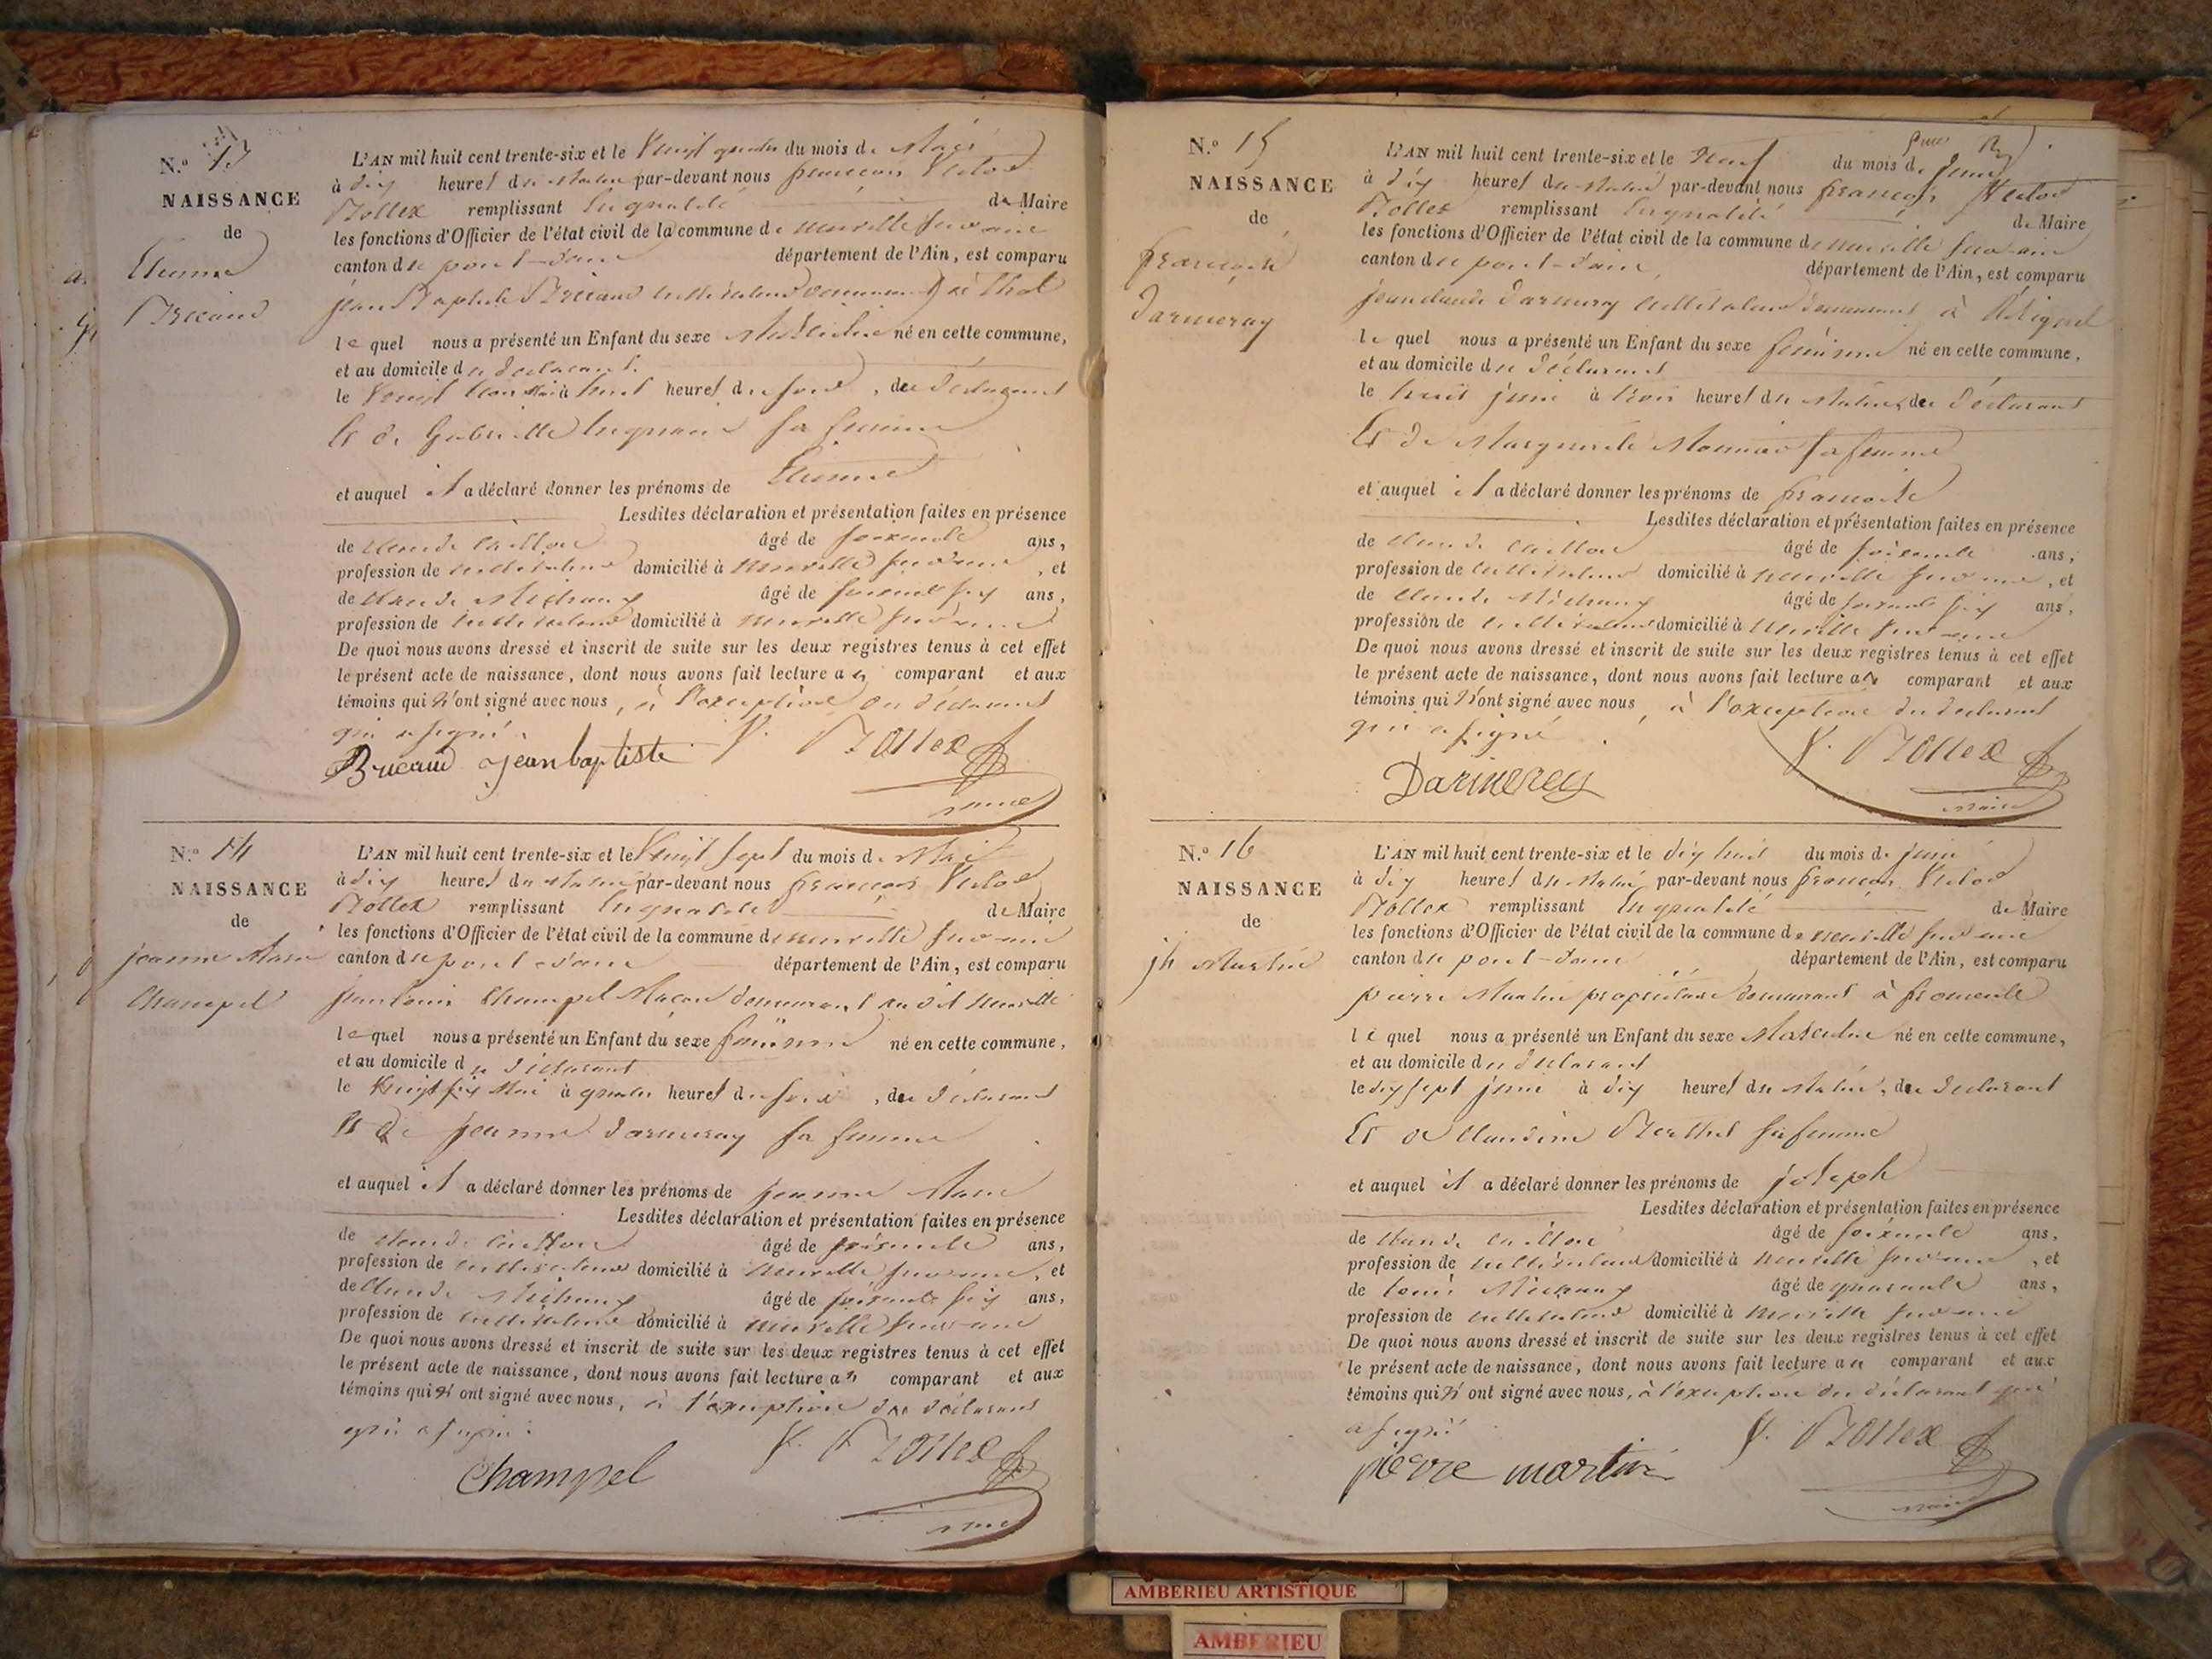 N.º 13
NAISSANCE
de
Etienne
Bricaud
L'AN mil huit cent trente-six et le Vingt quatre du mois de Mai
à dix heures du Matin par-devant nous françois Victor
Bollex remplissant en qualité de Maire
les fonctions d'Officier de l'état civil de la commune de neuville sur ain
canton de pont-d'ain département de l'Ain, est comparu
jean Baptiste Bricaud cultivateur demeurant à Thol
lequel nous a présenté un Enfant du sexe Masculin né en cette commune,
et au domicile du déclarant
le Vingt trois Mai à huit heures du soir, du déclarant
Et de Gabrielle sa femme
et auquel il a déclaré donner les prénoms de Etienne
Lesdites déclaration et présentation faites en présence
de Claude âgé de soixante ans,
profession de cultivateur domicilié à Neuville sur ain, et
de Claude Michaux âgé de soixante six ans,
profession de cultivateur domicilié à neuville sur ain
De quoi nous avons dressé et inscrit de suite sur les deux registres tenus à cet effet
le présent acte de naissance, dont nous avons fait lecture au comparant et aux
témoins qui n'ont signé avec nous, à l'exception du déclarant
qui a signé.
Bricaud jean baptiste V. Bollex
maire
N.º 14
NAISSANCE
de
jeanne Marie
Champel
L'AN mil huit cent trente-six et le Vingt sept du mois de Mai
à dix heures du matin par-devant nous françois Victor
Bollex remplissant en qualité de Maire
les fonctions d'Officier de l'état civil de la commune de neuville sur ain
canton de pont-d'ain département de l'Ain, est comparu
jean louis Champel Maçon demeurant au dit Neuville
lequel nous a présenté un Enfant du sexe féminin né en cette commune,
et au domicile du déclarant
le Vingt six Mai à quatre heures du soir, du déclarant
Et de jeanne darmeray sa femme
et auquel il a déclaré donner les prénoms de jeanne Marie
Lesdites déclaration et présentation faites en présence
de Claude âgé de soixante ans,
profession de cultivateur domicilié à Neuville sur ain, et
de Claude Michaux âgé de soixante six ans,
profession de cultivateur domicilié à neuville sur ain
De quoi nous avons dressé et inscrit de suite sur les deux registres tenus à cet effet
le présent acte de naissance, dont nous avons fait lecture au comparant et aux
témoins qui n'ont signé avec nous, à l'exception du déclarant
qui a signé.
Champel V. Bollex
maire
N.º 15
NAISSANCE
de
françoise
darmeray
L'AN mil huit cent trente-six et le neuf du mois de juin
à dix heures du Matin par-devant nous françois Victor
Bollex remplissant en qualité de Maire
les fonctions d'Officier de l'état civil de la commune de neuville sur ain
canton de pont-d'ain département de l'Ain, est comparu
jean claude darmeray cultivateur demeurant à
lequel nous a présenté un Enfant du sexe féminin né en cette commune,
et au domicile du déclarant
le huit juin à trois heures du Matin, du déclarant
Et de Marguerite Monnier sa femme
et auquel il a déclaré donner les prénoms de françoise
Lesdites déclaration et présentation faites en présence
de Claude âgé de soixante ans,
profession de cultivateur domicilié à neuville sur ain, et
de Claude Michaux âgé de soixante six ans,
profession de cultivateur domicilié à Neuville sur ain
De quoi nous avons dressé et inscrit de suite sur les deux registres tenus à cet effet
le présent acte de naissance, dont nous avons fait lecture au comparant et aux
témoins qui n'ont signé avec nous, à l'exception du déclarant
qui a signé
Darmerey V. Bollex
maire
N.º 16
NAISSANCE
de
jh Martin
L'AN mil huit cent trente-six et le dix huit du mois de juin
à dix heures du Matin par-devant nous françois Victor
Bollex remplissant en qualité de Maire
les fonctions d'Officier de l'état civil de la commune de neuville sur ain
canton de pont-d'ain département de l'Ain, est comparu
pierre Martin propriétaire demeurant à fromente
lequel nous a présenté un Enfant du sexe Masculin né en cette commune,
et au domicile du déclarant
le dix sept juin à dix heures du Matin, du déclarant
Et de Claudine Berthet sa femme
et auquel il a déclaré donner les prénoms de joseph
Lesdites déclaration et présentation faites en présence
de Claude âgé de soixante ans,
profession de cultivateur domicilié à neuville sur ain, et
de louis Michaux âgé de quarante ans,
profession de cultivateur domicilié à Neuville sur ain
De quoi nous avons dressé et inscrit de suite sur les deux registres tenus à cet effet
le présent acte de naissance, dont nous avons fait lecture au comparant et aux
témoins qui n'ont signé avec nous, à l'exception du déclarant qui
a signé
pierre martin V. Bollex
maire
AMBERIEU ARTISTIQUE
AMBERIEU